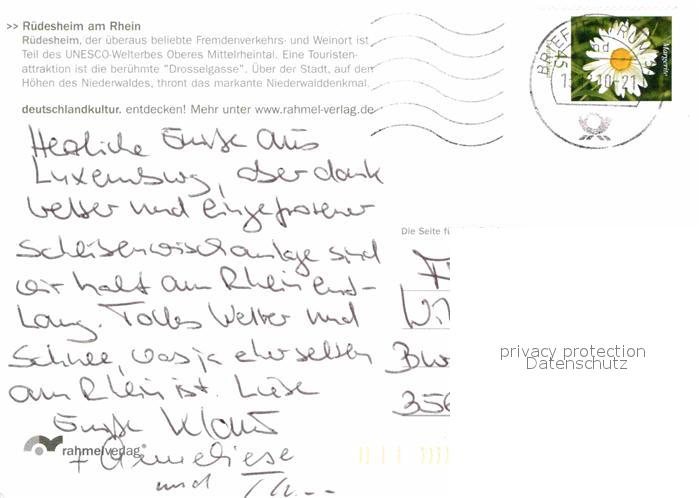 >> Rüdesheim am Rhein
Rüdesheim, der überaus beliebte Fremdenverkehrs- und Weinort ist
Teil des UNESCO-Welterbes Oberes Mittelrheintal. Eine Touristen-
attraktion ist die berühmte "Drosselgasse". Über der Stadt, auf den
Höhen des Niederwaldes, thront das markante Niederwalddenkmal.
deutschlandkultur. entdecken! Mehr unter www.rahmel-verlag.de
BRIEFZENTRUM
10-21
Margerite
Herzliche Grüße aus
Luxemburg, aber dank
Wetter und eingefrorener
Scheibenwischanlage sind
wir halt am Rhein ent-
lang. Tolles Wetter und
Schnee, was ja eher selten
am Rhein ist. Liebe
Grüße Klaus
+ Anneliese
und
Die Seite fü
356
privacy protection
Datenschutz
rahmelverlag